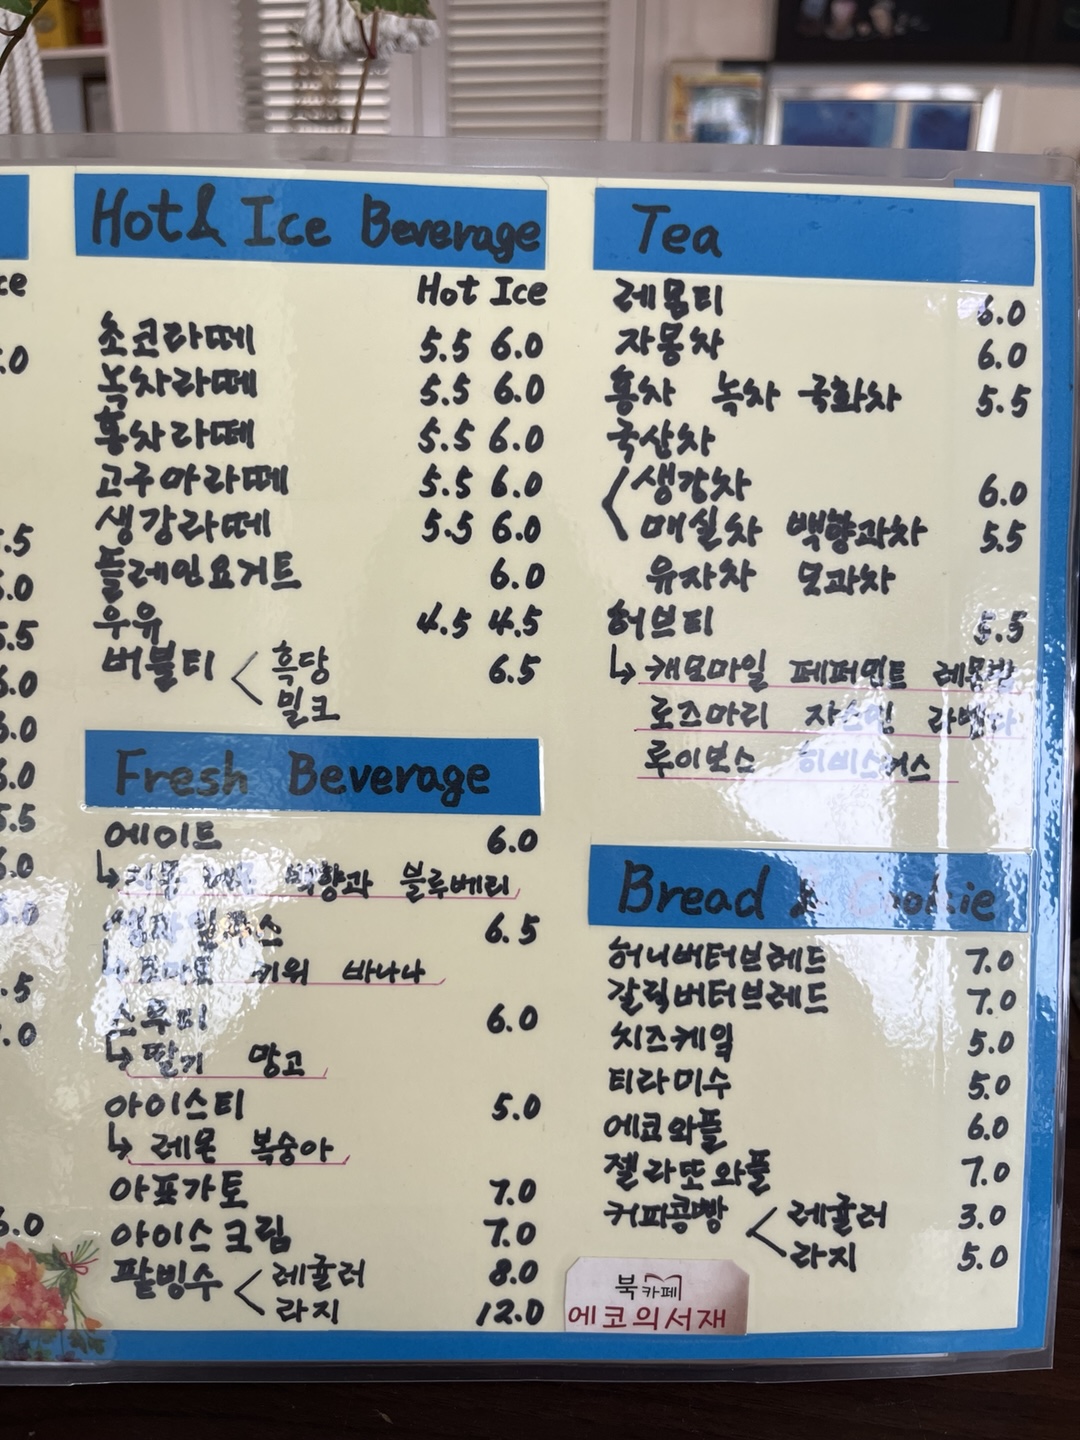 ce
.0
.5
5.0
5.5
6.0
6.0
6.0
5.5
6.0
.5
.0
6.0
Hot & Ice Beverage
Hot Ice
초코라떼 5.5 6.0
녹차라떼 5.5 6.0
홍차라떼 5.5 6.0
고구마라떼 5.5 6.0
생강라떼 5.5 6.0
플레인요거트 6.0
우유 4.5 4.5
버블티 < 흑당 6.5
밀크
Fresh Beverage
에이드 6.0
↳ 자몽 레몬 백향과 블루베리
생과일쥬스 6.5
↳ 토마토 키위 바나나
스무디 6.0
↳ 딸기 망고
아이스티 5.0
↳ 레몬 복숭아
아포가토 7.0
아이스크림 7.0
팥빙수 < 레귤러 8.0
라지 12.0
Tea
레몬티 6.0
자몽차 6.0
홍차 녹차 국화차 5.5
국산차
생강차 6.0
매실차 백향과차 5.5
유자차 모과차
허브티 5.5
↳ 캐모마일 페퍼민트 레몬밤
로즈마리 자스민 라벤다
루이보스 히비스커스
Bread & Cookie
허니버터브레드 7.0
갈릭버터브레드 7.0
치즈케잌 5.0
티라미수 5.0
에코와플 6.0
젤라또와플 7.0
커피콩빵 < 레귤러 3.0
라지 5.0
북카페
에코의서재